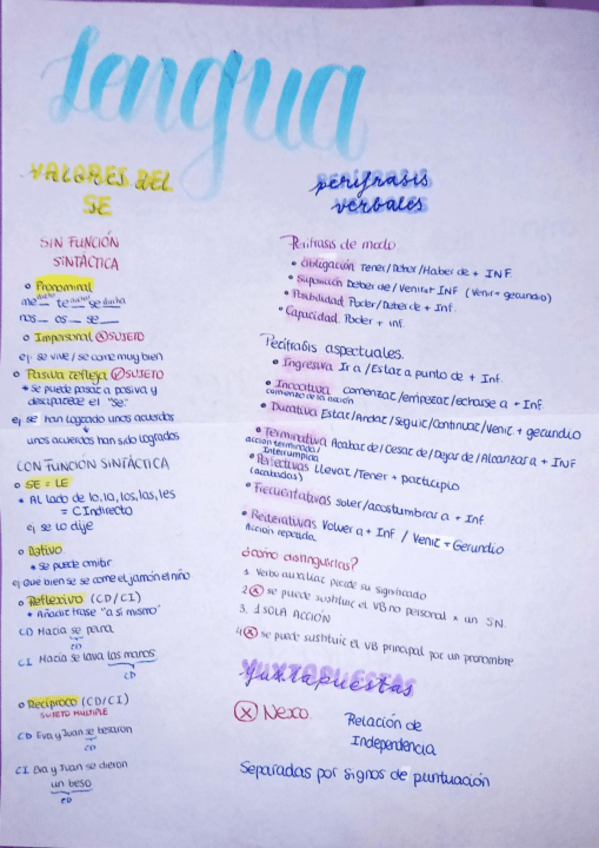 Lengua
VALORES DEL
SE
SIN FUNCIÓN
SINTÁCTICA
Pronominal
me ducho te duchas se ducha
nos __ os __ se __
Impersonal ⓧ SUJETO
ej. se vive / se come muy bien
Pasiva refleja SUJETO
* Se puede pasar a pasiva y
desaparece el "se"
ej se han logrado unos acuerdos
unos acuerdos han sido logrados
CON FUNCIÓN SINTÁCTICA
SE = LE
* AL lado de lo, la, los, las, les
= C Indirecto
ej se lo dije
Dativo
* se puede omitir
ej Que bien se se come el jamón el niño
Reflexivo (CD/CI)
* Añadir frase "a sí mismo"
CD María se peina
CD
CI María se lava las manos
CD
Recíproco (CD/CI)
SUJETO MULTIPLE
CD Eva y Juan se besaron
CD
CI Eva y Juan se dieron
un beso
CD
perífrasis
verbales
Perífrasis de modo
Obligación Tener/Deber/Haber de + INF.
Suposición Deber de / Venir a + INF (Venir + gerundio)
Posibilidad Poder/Deber de + Inf.
Capacidad Poder + inf.
Perífrasis aspectuales.
Ingresiva Ir a / Estar a punto de + Inf.
Incoativa comenzar/empezar/echarse a + Inf
comienzo de la acción
Durativa Estar/Andar/Seguir/Continuar/Venir + gerundio
Terminativa Acabar de/Cesar de/Dejar de/Alcanzar a + INF
acción terminada/
Interrumpida
Perfectivas Llevar/Tener + participio
(acabadas)
Frecuentativas soler/acostumbrar a + Inf
Reiterativas Volver a + Inf / Venir + Gerundio
Acción repetida.
¿cómo distinguirlas?
1 Verbo auxiliar pierde su significado
2 ⓧ se puede sustituir el VB no personal x un SN.
3. 1 SOLA ACCIÓN
4 ⓧ se puede sustituir el VB principal por un pronombre
YUXTAPUESTAS
yuxtapuestas
ⓧ Nexo.
Relación de
Independencia
Separadas por signos de puntuación